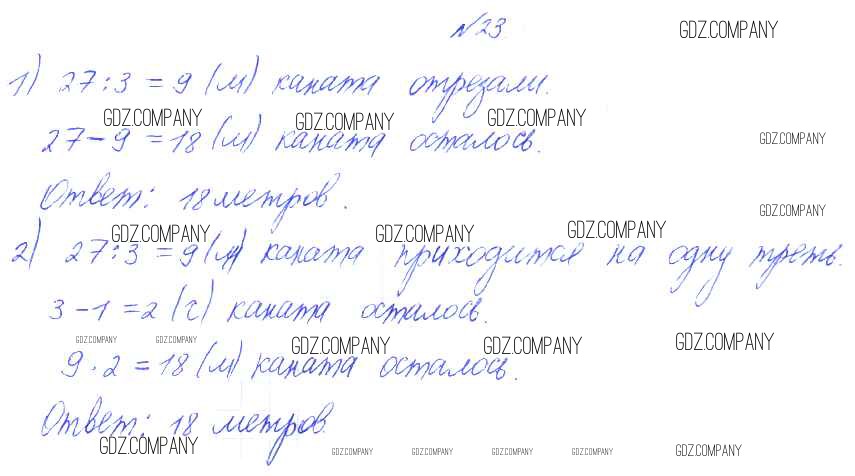 №23. GDZ.COMPANY
1) 27:3=9 (м) каната отрезали.
GDZ.COMPANY GDZ.COMPANY GDZ.COMPANY
27-9=18 (м) каната осталось. GDZ.COMPANY
Ответ: 18 метров.
GDZ.COMPANY
GDZ.COMPANY GDZ.COMPANY GDZ.COMPANY
2) 27:3=9 (м) каната приходится на одну треть.
3-1=2 (ч) каната осталось.
GDZ.COMPANY GDZ.COMPANY GDZ.COMPANY GDZ.COMPANY GDZ.COMPANY
9·2=18 (м) каната осталось.
Ответ: 18 метров.
GDZ.COMPANY GDZ.COMPANY GDZ.COMPANY GDZ.COMPANY GDZ.COMPANY GDZ.COMPANY